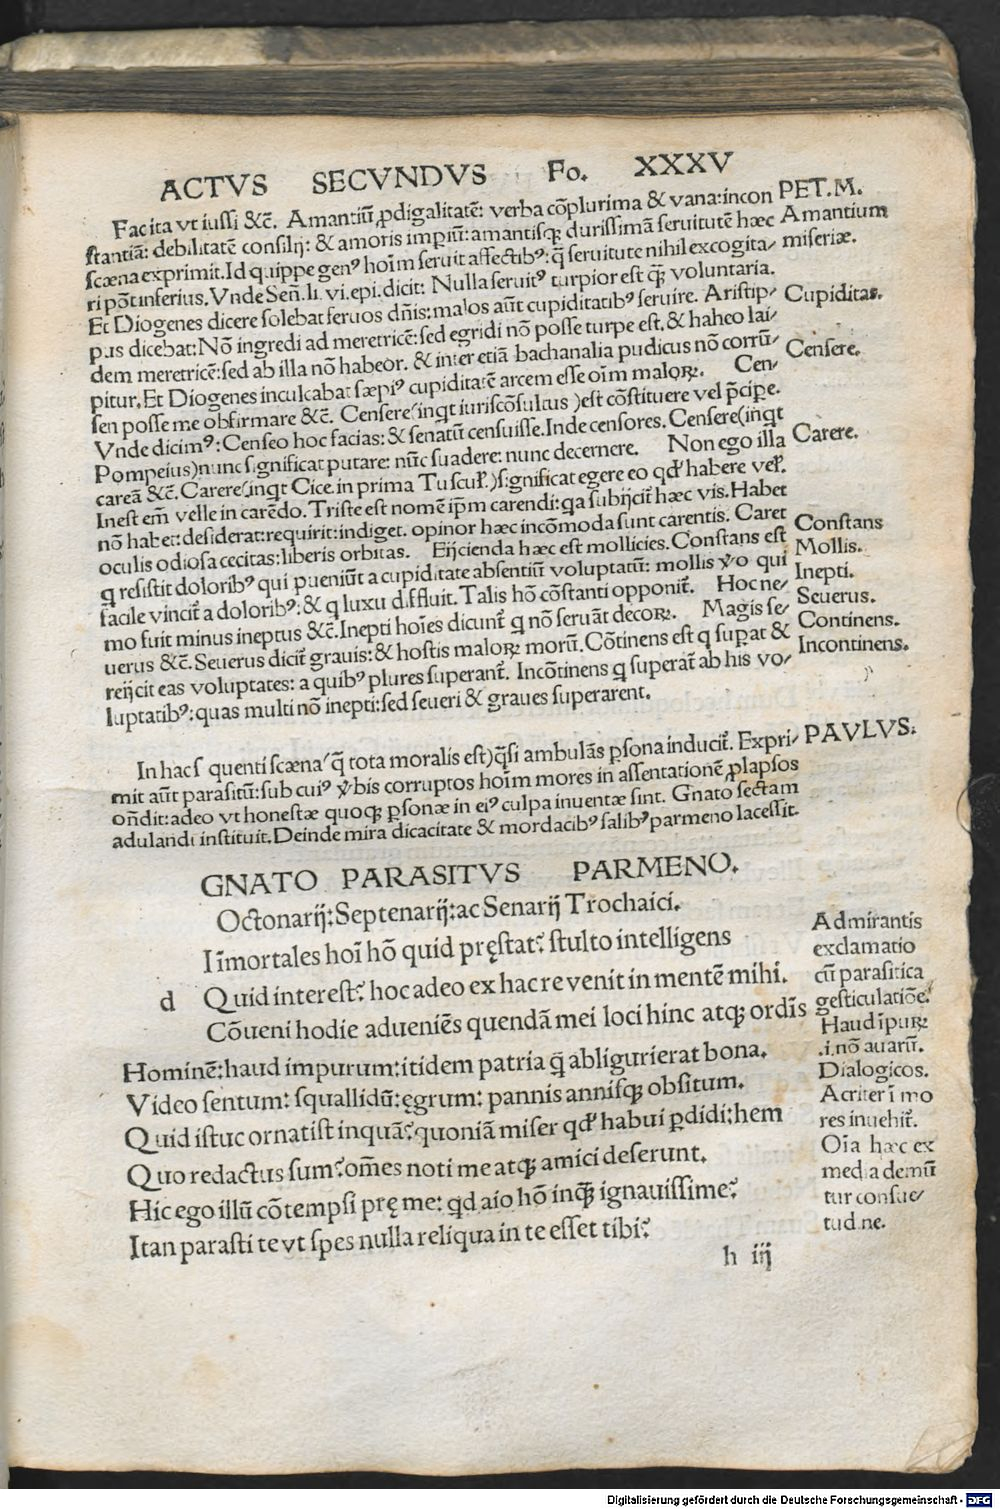 ACTVS SECVNDVS Fo. XXXV
Fac ita vt iussi &c̃. Amantiũ ꝓdigalitatẽ: verba cõplurima & vana: incon
stantiã: debilitatẽ consilij: & amoris impiũ: amantisqꝫ durissimã seruitutẽ hæc
scæna exprimit. Id quippe genꝰ hoĩm seruit affectibꝰ: q̃ seruitute nihil excogita/
ri põt inferius. Vnde Señ. li. vi. epi. dicit: Nulla seruitꝰ turpior est q̃ꝫ voluntaria.
Et Diogenes dicere solebat seruos dñis: malos aũt cupiditatibꝰ seruire. Aristip/
pus dicebat: Nõ ingredi ad meretricẽ: sed egridi nõ posse turpe est. & habeo lai/
dem meretricẽ: sed ab illa nõ habeor. & inter etiã bachanalia pudicus nõ corrũ/
pitur. Et Diogenes inculcabat sæpiꝰ cupiditatẽ arcem esse oĩm maloꝝ. Cen/
sen posse me obfirmare &c̃. Censere (inqt iuriscõsultus) est cõstituere vel p̃cipe.
Vnde dicimꝰ: Censeo hoc facias: & senatũ censuisse. Inde censores. Censere (inqt
Pompeius) nunc significat putare: nũc suadere: nunc decernere. Non ego illa
careã &c̃. Carere (inqt Cice. in prima Tuscul̃.) significat egere eo qd̃ habere vel̃.
Inest em̃ velle in carẽdo. Triste est nomẽ ip̃m carendi: qa subijcit̃ hæc vis. Habet
nõ habet: desiderat: requirit: indiget. opinor hæc incõmoda sunt carentis. Caret
oculis odiosa cecitas: liberis orbitas. Eijcienda hæc est mollicies. Constans est
q resistit doloribꝰ qui pueniũt a cupiditate absentiũ voluptatũ: mollis v̊o qui
facile vincit̃ a doloribꝰ: & q luxu diffluit. Talis hõ cõstanti opponit̃. Hoc ne/
mo fuit minus ineptus &c̃. Inepti hoĩes dicunt̃ q nõ seruãt decoꝝ. Magis se/
uerus &c̃. Seuerus dicit̃ grauis: & hostis maloꝝ morũ. Cõtinens est q supat &
reijcit eas voluptates: a quibꝰ plures superant̃. Incõtinens q superat̃ ab his vo/
luptatibꝰ: quas multi nõ inepti: sed seueri & graues superarent.
PET. M.
Amantium
miseriæ.
Cupiditas.
Censere.
Carere.
Constans
Mollis.
Inepti.
Seuerus.
Continens.
Incontinens.
In hac sequenti scæna (q̃ tota moralis est) q̃si ambulãs ꝑsona inducit̃. Expri/
mit aũt parasitũ: sub cuiꝰ v̊bis corruptos hoĩm mores in assentationẽ ꝓlapsos
oñdit: adeo vt honestæ quoqꝫ ꝑsonæ in eiꝰ culpa inuentæ sint. Gnato sectam
adulandi instituit. Deinde mira dicacitate & mordacibꝰ salibꝰ parmeno lacessit.
PAVLVS.
GNATO PARASITVS PARMENO.
Octonarij: Septenarij: ac Senarij Trochaici.
d
Iĩmortales hoĩ hõ quid pręstat? stulto intelligens
Quid interest? hoc adeo ex hac re venit in mentẽ mihi.
Cõueni hodie adueniẽs quendã mei loci hinc atqꝫ ordĩs
Hominẽ: haud impurum: itidem patria q̃ abligurierat bona.
Video sentum: squallidũ: ęgrum: pannis annisqꝫ obsitum.
Quid istuc ornatist inquã? quoniã miser qd̃ habui ꝑdidi: hem
Quo redactus sum? om̃es noti me atqꝫ amici deserunt.
Hic ego illũ cõtempsi pręme: qd aio hõ inq̃ꝫ ignauissime?
Itan parasti te vt spes nulla reliqua in te esset tibi?
Admirantis
exclamatio
cũ parasitica
gesticulatiõe.
Haud ĩpuꝝ
.i. nõ auarũ.
Dialogicos.
Acriter ĩ mo
res inuehit̃.
Oĩa hæc ex
media demũ
tur consue/
tudine.
h iij
Digitalisierung gefördert durch die Deutsche Forschungsgemeinschaft - DFG